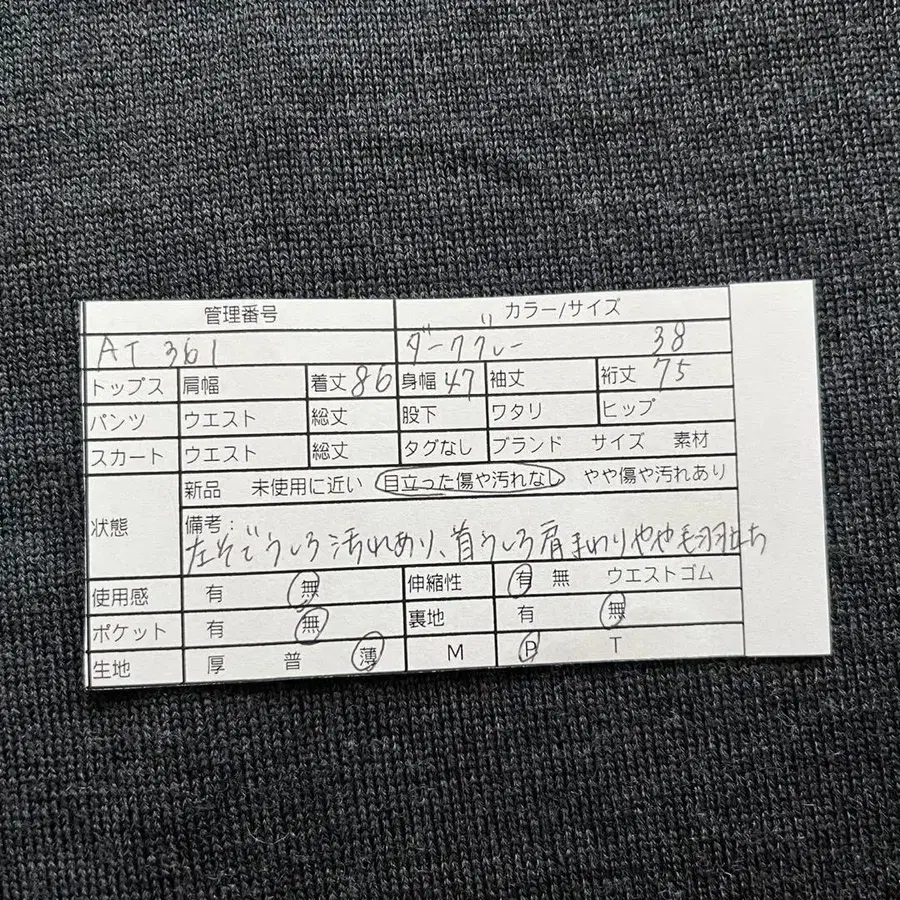 管理番号 カラー/サイズ
AT 361 ダークグレー 38
トップス 肩幅 着丈 86 身幅 47 袖丈 裄丈 75
パンツ ウエスト 総丈 股下 ワタリ ヒップ
スカート ウエスト 総丈 タグなし ブランド サイズ 素材
状態 新品 未使用に近い 目立った傷や汚れなし やや傷や汚れあり
備考:
左そでうしろ汚れあり、首うしろ肩まわりやや毛羽立ち
使用感 有 無 伸縮性 有 無 ウエストゴム
ポケット 有 無 裏地 有 無
生地 厚 普 薄 M P T